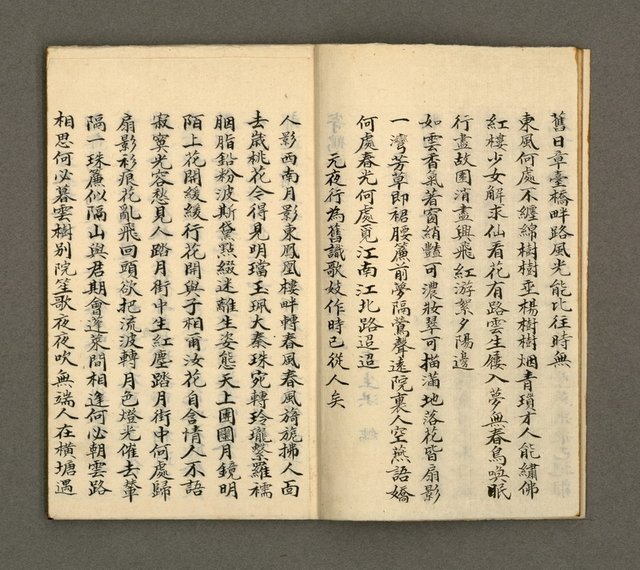 舊日章臺橋畔路風光能比往時無
東風何處不纏綿樹樹垂楊樹樹烟青瑣才人能繡佛
紅樓少女解求仙看花有路雲生屨入夢無春鳥喚眠
行盡故園消晝興飛紅游絮夕陽邊
如雲香氣著窗綃豔可濃妝翠可描滿地落花皆扇影
一灣芳草即裙腰簾前夢隔鶯聲遠院裏人空燕語嬌
何處春光何處覓江南江北路迢迢
元夜行為舊識歌妓作時已從人矣
人影西南月影東鳳凰樓畔轉春風春風旖旎拂人面
去歲桃花今得見明璫玉珮大秦珠宛轉玲瓏繫羅襦
胭脂鉛粉波斯黛點綴迷離生姿態天上團團月鏡明
陌上花開緩緩行花開與子相甫汝花自含情人不語
寂寞光容愁見人踏月街中生紅塵踏月街中何處歸
扇影衫痕花亂飛回頭欲把流波轉月色燈光催去輦
隔一珠簾似隔山與君期會蓬萊間相逢何必朝雲路
相思何必暮雲樹別院笙歌夜夜吹無端人在橫塘遇